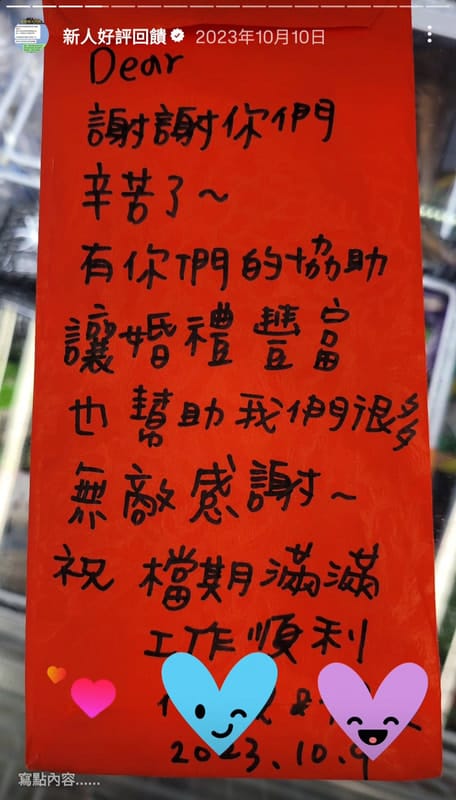 新人好評回饋 2023年10月10日
Dear
謝謝你們
辛苦了~
有你們的協助
讓婚禮豐富
也幫助我們很多
無敵感謝~
祝 檔期滿滿
工作順利
&
2023.10.9
寫點內容......